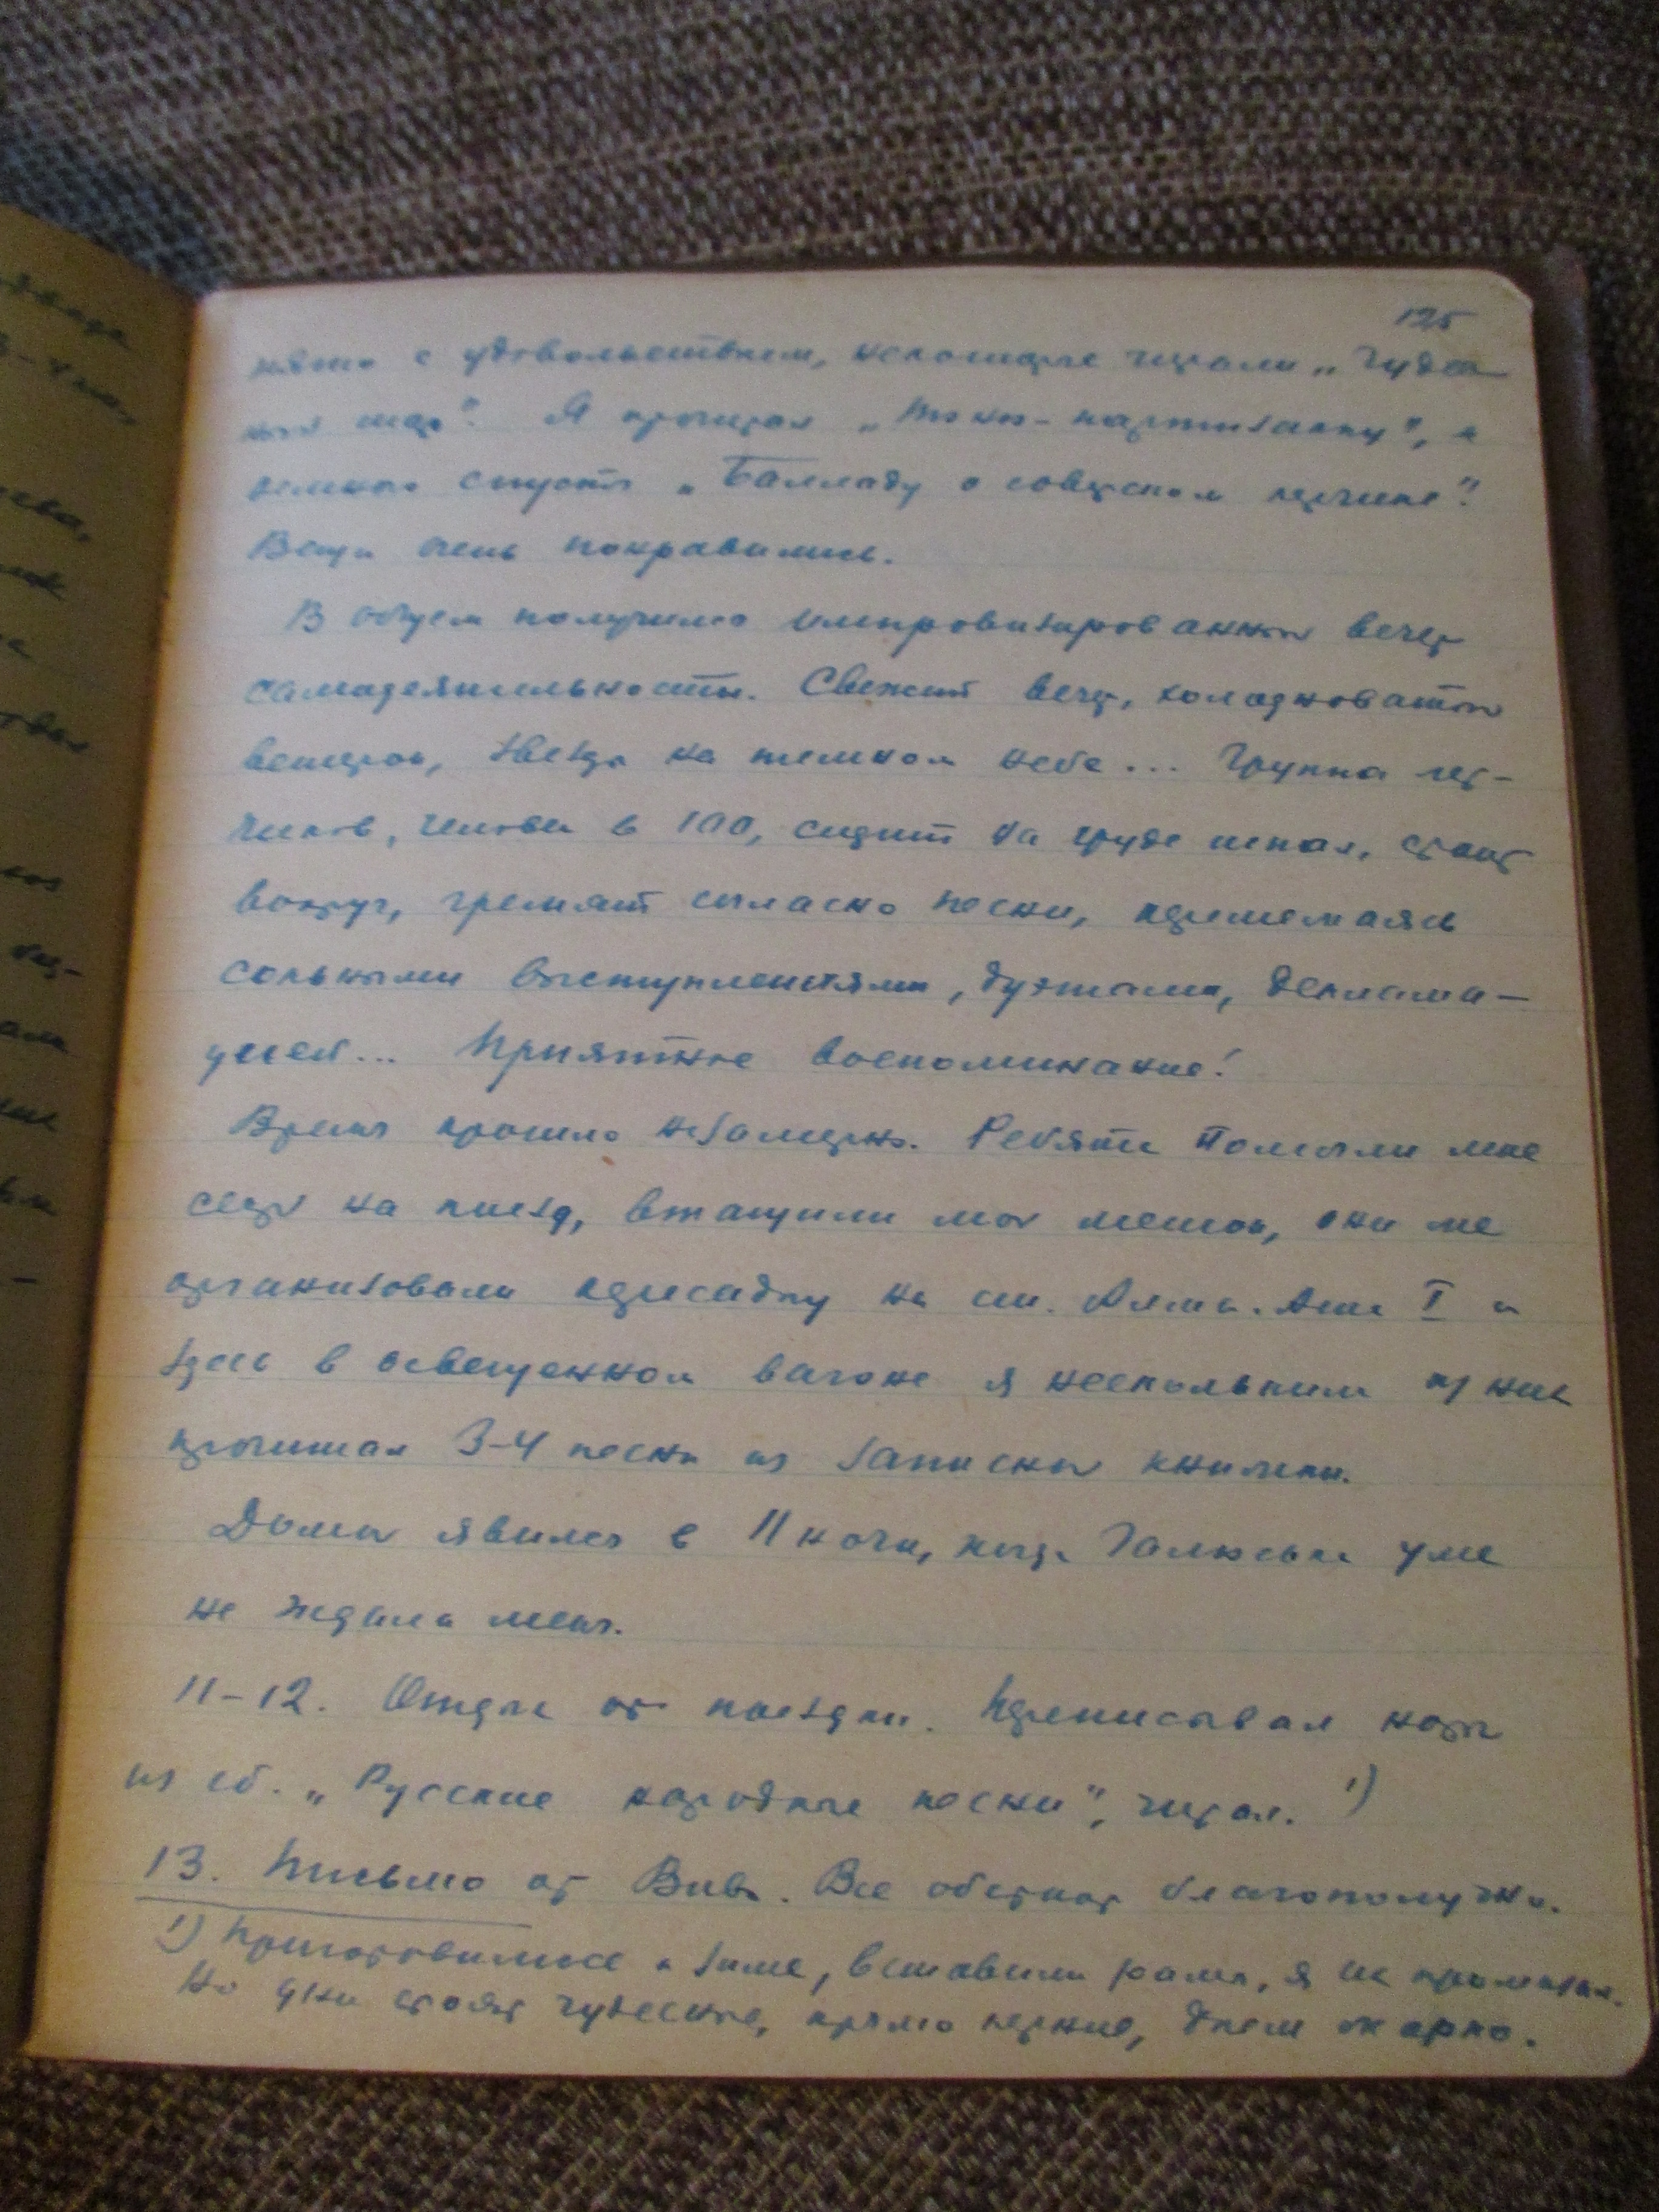 125
нято с удовольствием, некоторые читали „Чудес-
ный шар". Я прочитал „Токо-партизанку", а
немного спустя „Балладу о советском летчике".
Вещи очень понравились.
В общем получился импровизированный вечер
самодеятельности. Свежий вечер, холодноватый
ветерок, звезды на темном небе... Группа лет-
чиков, человек в 100, сидит на груде шпал, стоит
вокруг, гремят согласно песни, перемежаясь
сольными выступлениями, дуэтами, деклама-
цией... Приятное воспоминание!
Время прошло незаметно. Ребята помогли мне
сесть на поезд, втащили мой мешок, они же
организовали пересадку на ст. Алма-Ата I и
здесь в освещенном вагоне я нескольким из них
прочитал 3-4 песни из записной книжки.
Домой явился в 11 ночи, когда Галюська уже
не ждала меня.
11-12. Отдых от поездки. Переписывал ноты
из сб. „Русские народные песни", читал. 1)
13. Письмо от Вивы. Все обстоит благополучно.
1) Приготовились к зиме, вставили рамы, я их промазал.
Но дни стоят чудесные, прямо летние, днем жарко.